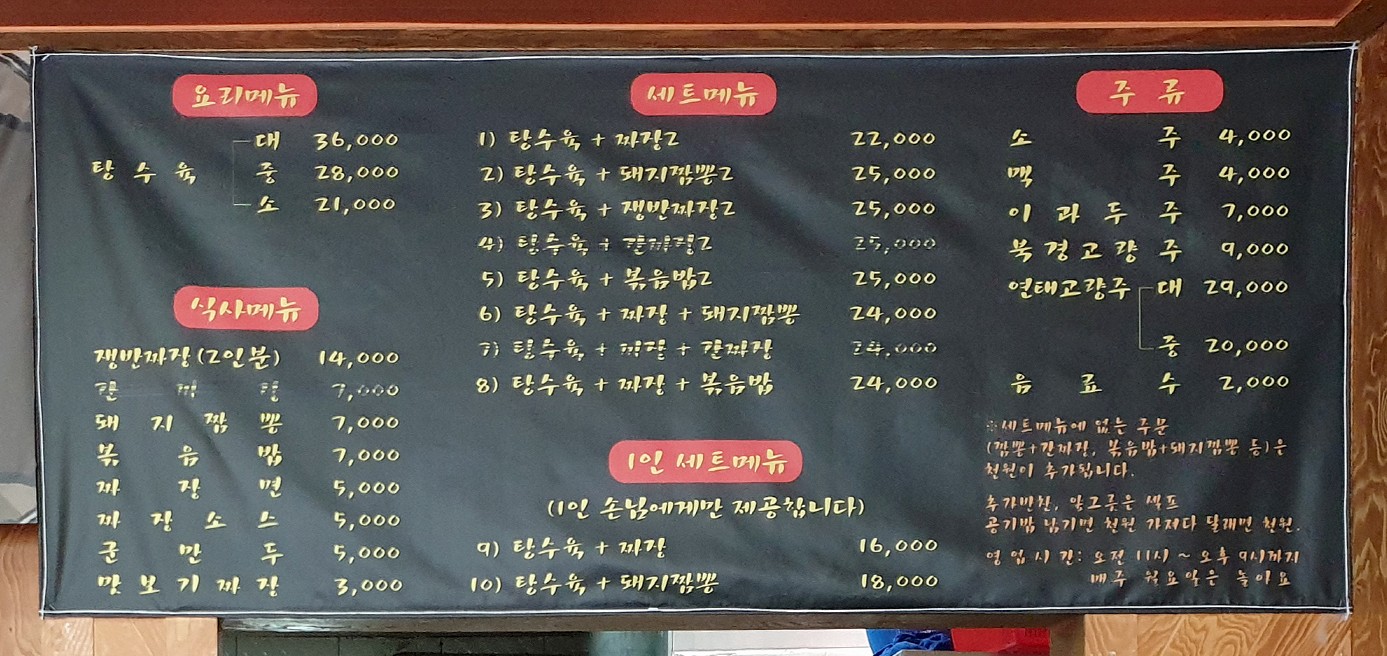 요리메뉴
탕수육
대 36,000
중 28,000
소 21,000
식사메뉴
쟁반짜장(2인분) 14,000
7,000
돼지짬뽕 7,000
볶음밥 7,000
짜장면 5,000
짜장소스 5,000
군만두 5,000
맛보기짜장 3,000
세트메뉴
1) 탕수육 + 짜장2 22,000
2) 탕수육 + 돼지짬뽕2 25,000
3) 탕수육 + 쟁반짜장2 25,000
4) 탕수육 + 25,000
5) 탕수육 + 볶음밥2 25,000
6) 탕수육 + 짜장 + 돼지짬뽕 24,000
7) 탕수육 + 짜장 + 간짜장 24,000
8) 탕수육 + 짜장 + 볶음밥 24,000
1인 세트메뉴
(1인 손님에게만 제공합니다)
9) 탕수육 + 짜장 16,000
10) 탕수육 + 돼지짬뽕 18,000
주류
소주 4,000
맥주 4,000
이과두주 7,000
북경고량주 9,000
연태고량주 대 29,000
중 20,000
음료수 2,000
※세트메뉴에 없는 주문
(짬뽕+간짜장, 볶음밥+돼지짬뽕 등)은
천원이 추가됩니다.
추가반찬, 앞그릇은 셀프
공기밥 남기면 천원 가져다 달래면 천원.
영업시간: 오전 11시 ~ 오후 9시까지
매주 월요일은 놀아요